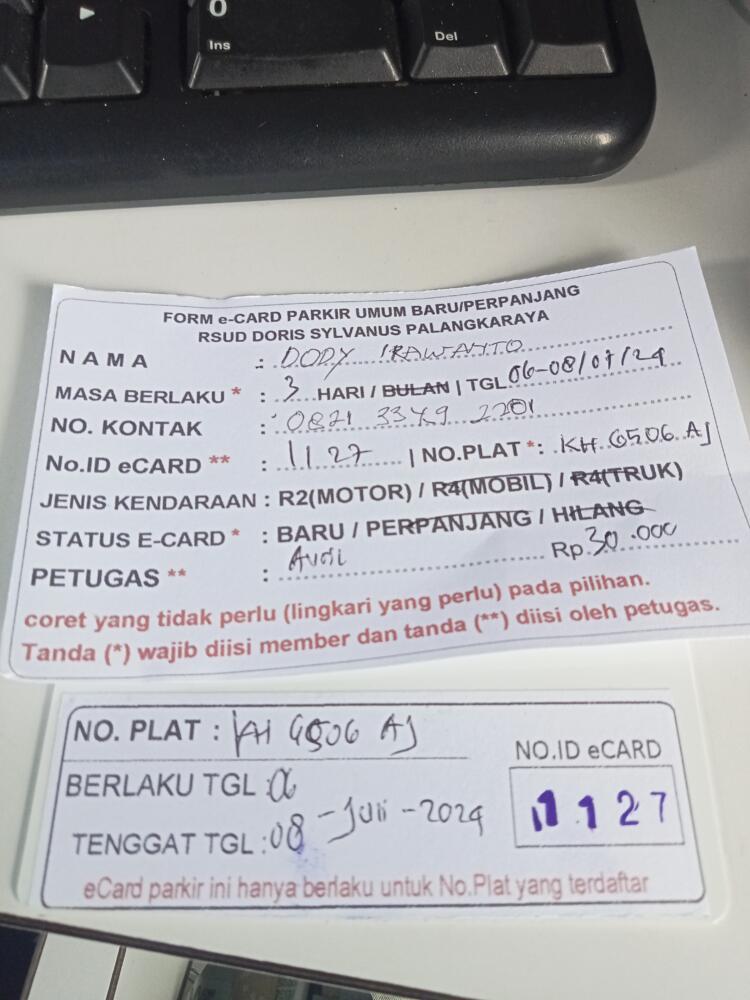 0
Ins
Del
FORM e-CARD PARKIR UMUM BARU/PERPANJANG
RSUD DORIS SYLVANUS PALANGKARAYA
NAMA : DODY IRAWANTO
MASA BERLAKU * : 3 HARI / BULAN | TGL 06-08/07/24
NO. KONTAK : 0821 3349 2201
No.ID eCARD ** : 1127 | NO.PLAT *: KH 6506 AJ
JENIS KENDARAAN : R2(MOTOR) / R4(MOBIL) / R4(TRUK)
STATUS E-CARD * : BARU / PERPANJANG / HILANG
PETUGAS ** : Audi Rp. 30.000
coret yang tidak perlu (lingkari yang perlu) pada pilihan.
Tanda (*) wajib diisi member dan tanda (**) diisi oleh petugas.
NO. PLAT : KH 6506 AJ
NO.ID eCARD
1127
BERLAKU TGL :
TENGGAT TGL : 08 - Juli - 2024
eCard parkir ini hanya berlaku untuk No.Plat yang terdaftar